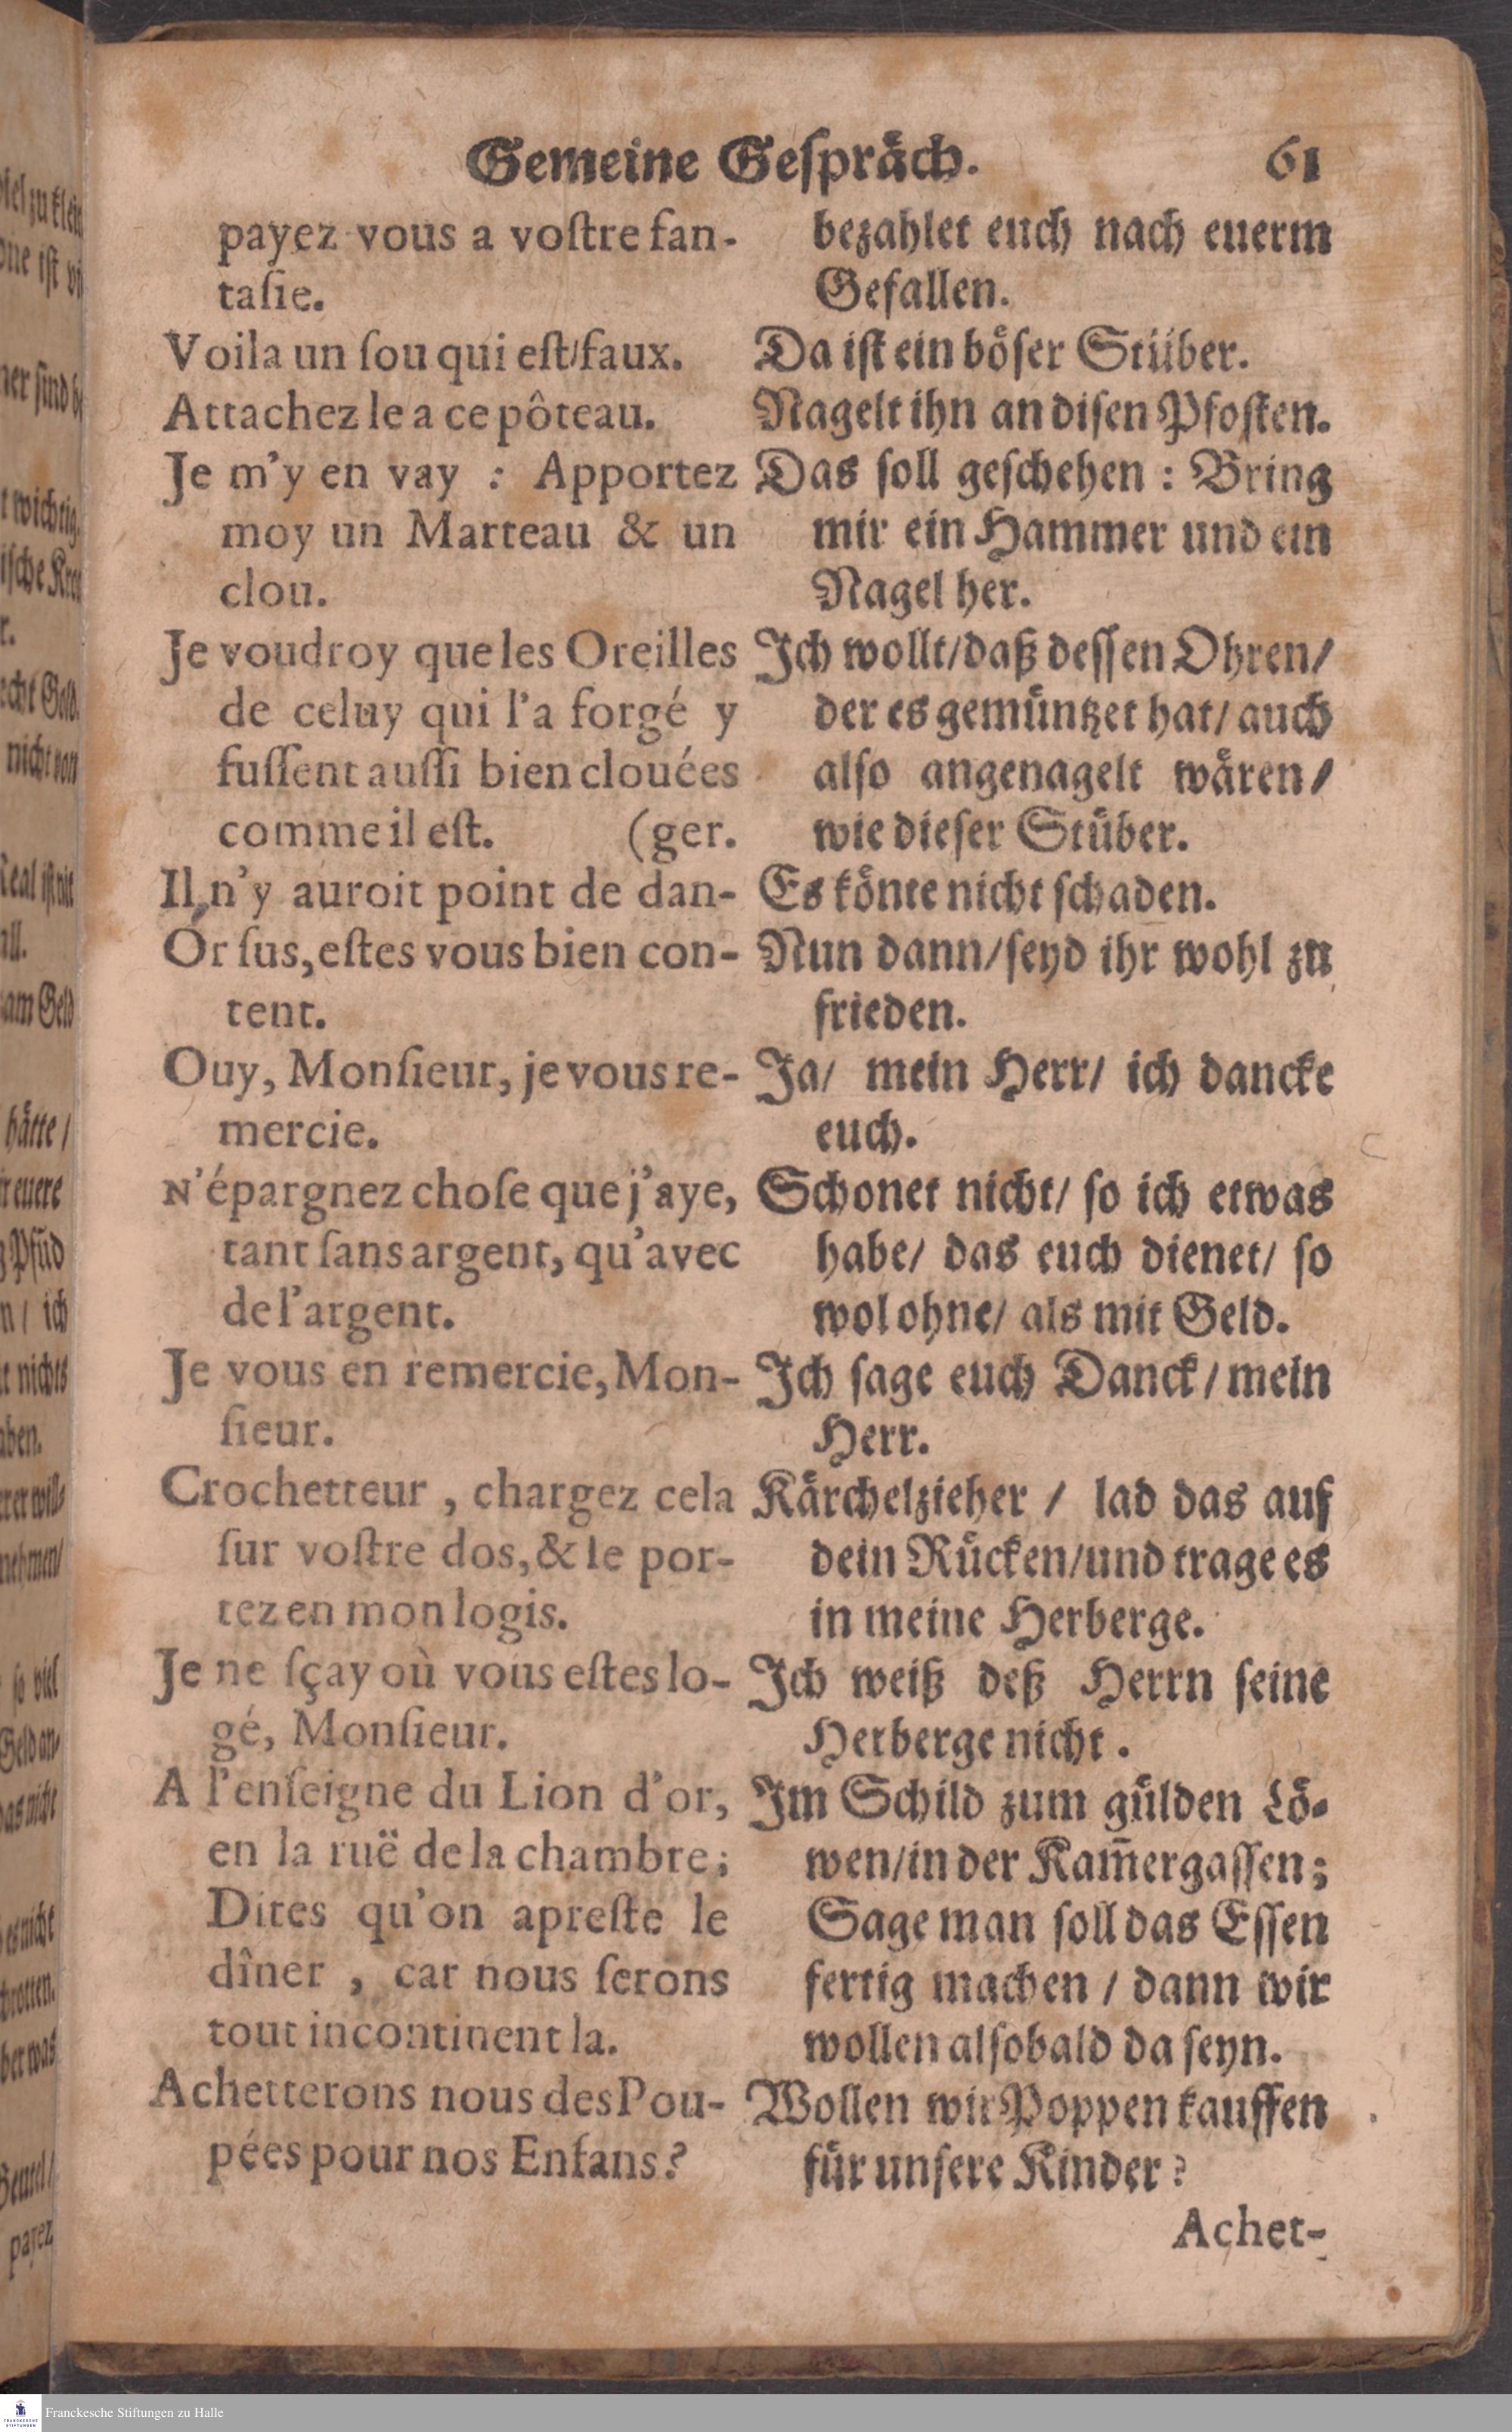 Gemeine Geſpräch. 61
payez vous a voſtre fan-
taſie.
Voila un ſou qui eſt faux.
Attachez le a ce pôteau.
Je m'y en vay : Apportez
moy un Marteau & un
clou.
Je voudroy que les Oreilles
de celuy qui l'a forgé y
fuſſent auſſi bien clouées
comme il eſt. (ger.
Il n'y auroit point de dan-
Or ſus, eſtes vous bien con-
tent.
Ouy, Monſieur, je vous re-
mercie.
N'épargnez choſe que j'aye,
tant ſans argent, qu'avec
de l'argent.
Je vous en remercie, Mon-
ſieur.
Crochetteur , chargez cela
ſur voſtre dos, & le por-
tez en mon logis.
Je ne ſçay où vous eſtes lo-
gé, Monſieur.
A l'enſeigne du Lion d'or,
en la ruë de la chambre;
Dites qu'on apreſte le
dîner , car nous ſerons
tout incontinent la.
Achetterons nous des Pou-
pées pour nos Enfans?
bezahlet euch nach euerm
Gefallen.
Da iſt ein böſer Stüber.
Nagelt ihn an diſen Pfoſten.
Das ſoll geſchehen : Bring
mir ein Hammer und ein
Nagel her.
Ich wollt/daß deſſen Ohren/
der es gemüntzet hat/ auch
alſo angenagelt wären/
wie dieſer Stüber.
Es könte nicht ſchaden.
Nun dann/ſeyd ihr wohl zu
frieden.
Ja/ mein Herr/ ich dancke
euch.
Schonet nicht/ ſo ich etwas
habe/ das euch dienet/ ſo
wol ohne/ als mit Geld.
Ich ſage euch Danck/ mein
Herr.
Kärchelzieher / lad das auf
dein Rücken/und trage es
in meine Herberge.
Ich weiß deß Herrn ſeine
Herberge nicht .
Im Schild zum gülden Lö-
wen/in der Kam̄ergaſſen;
Sage man ſoll das Eſſen
fertig machen / dann wir
wollen alſobald da ſeyn.
Wollen wir Poppen kauffen
für unſere Kinder?
Achet-
Franckesche Stiftungen zu Halle